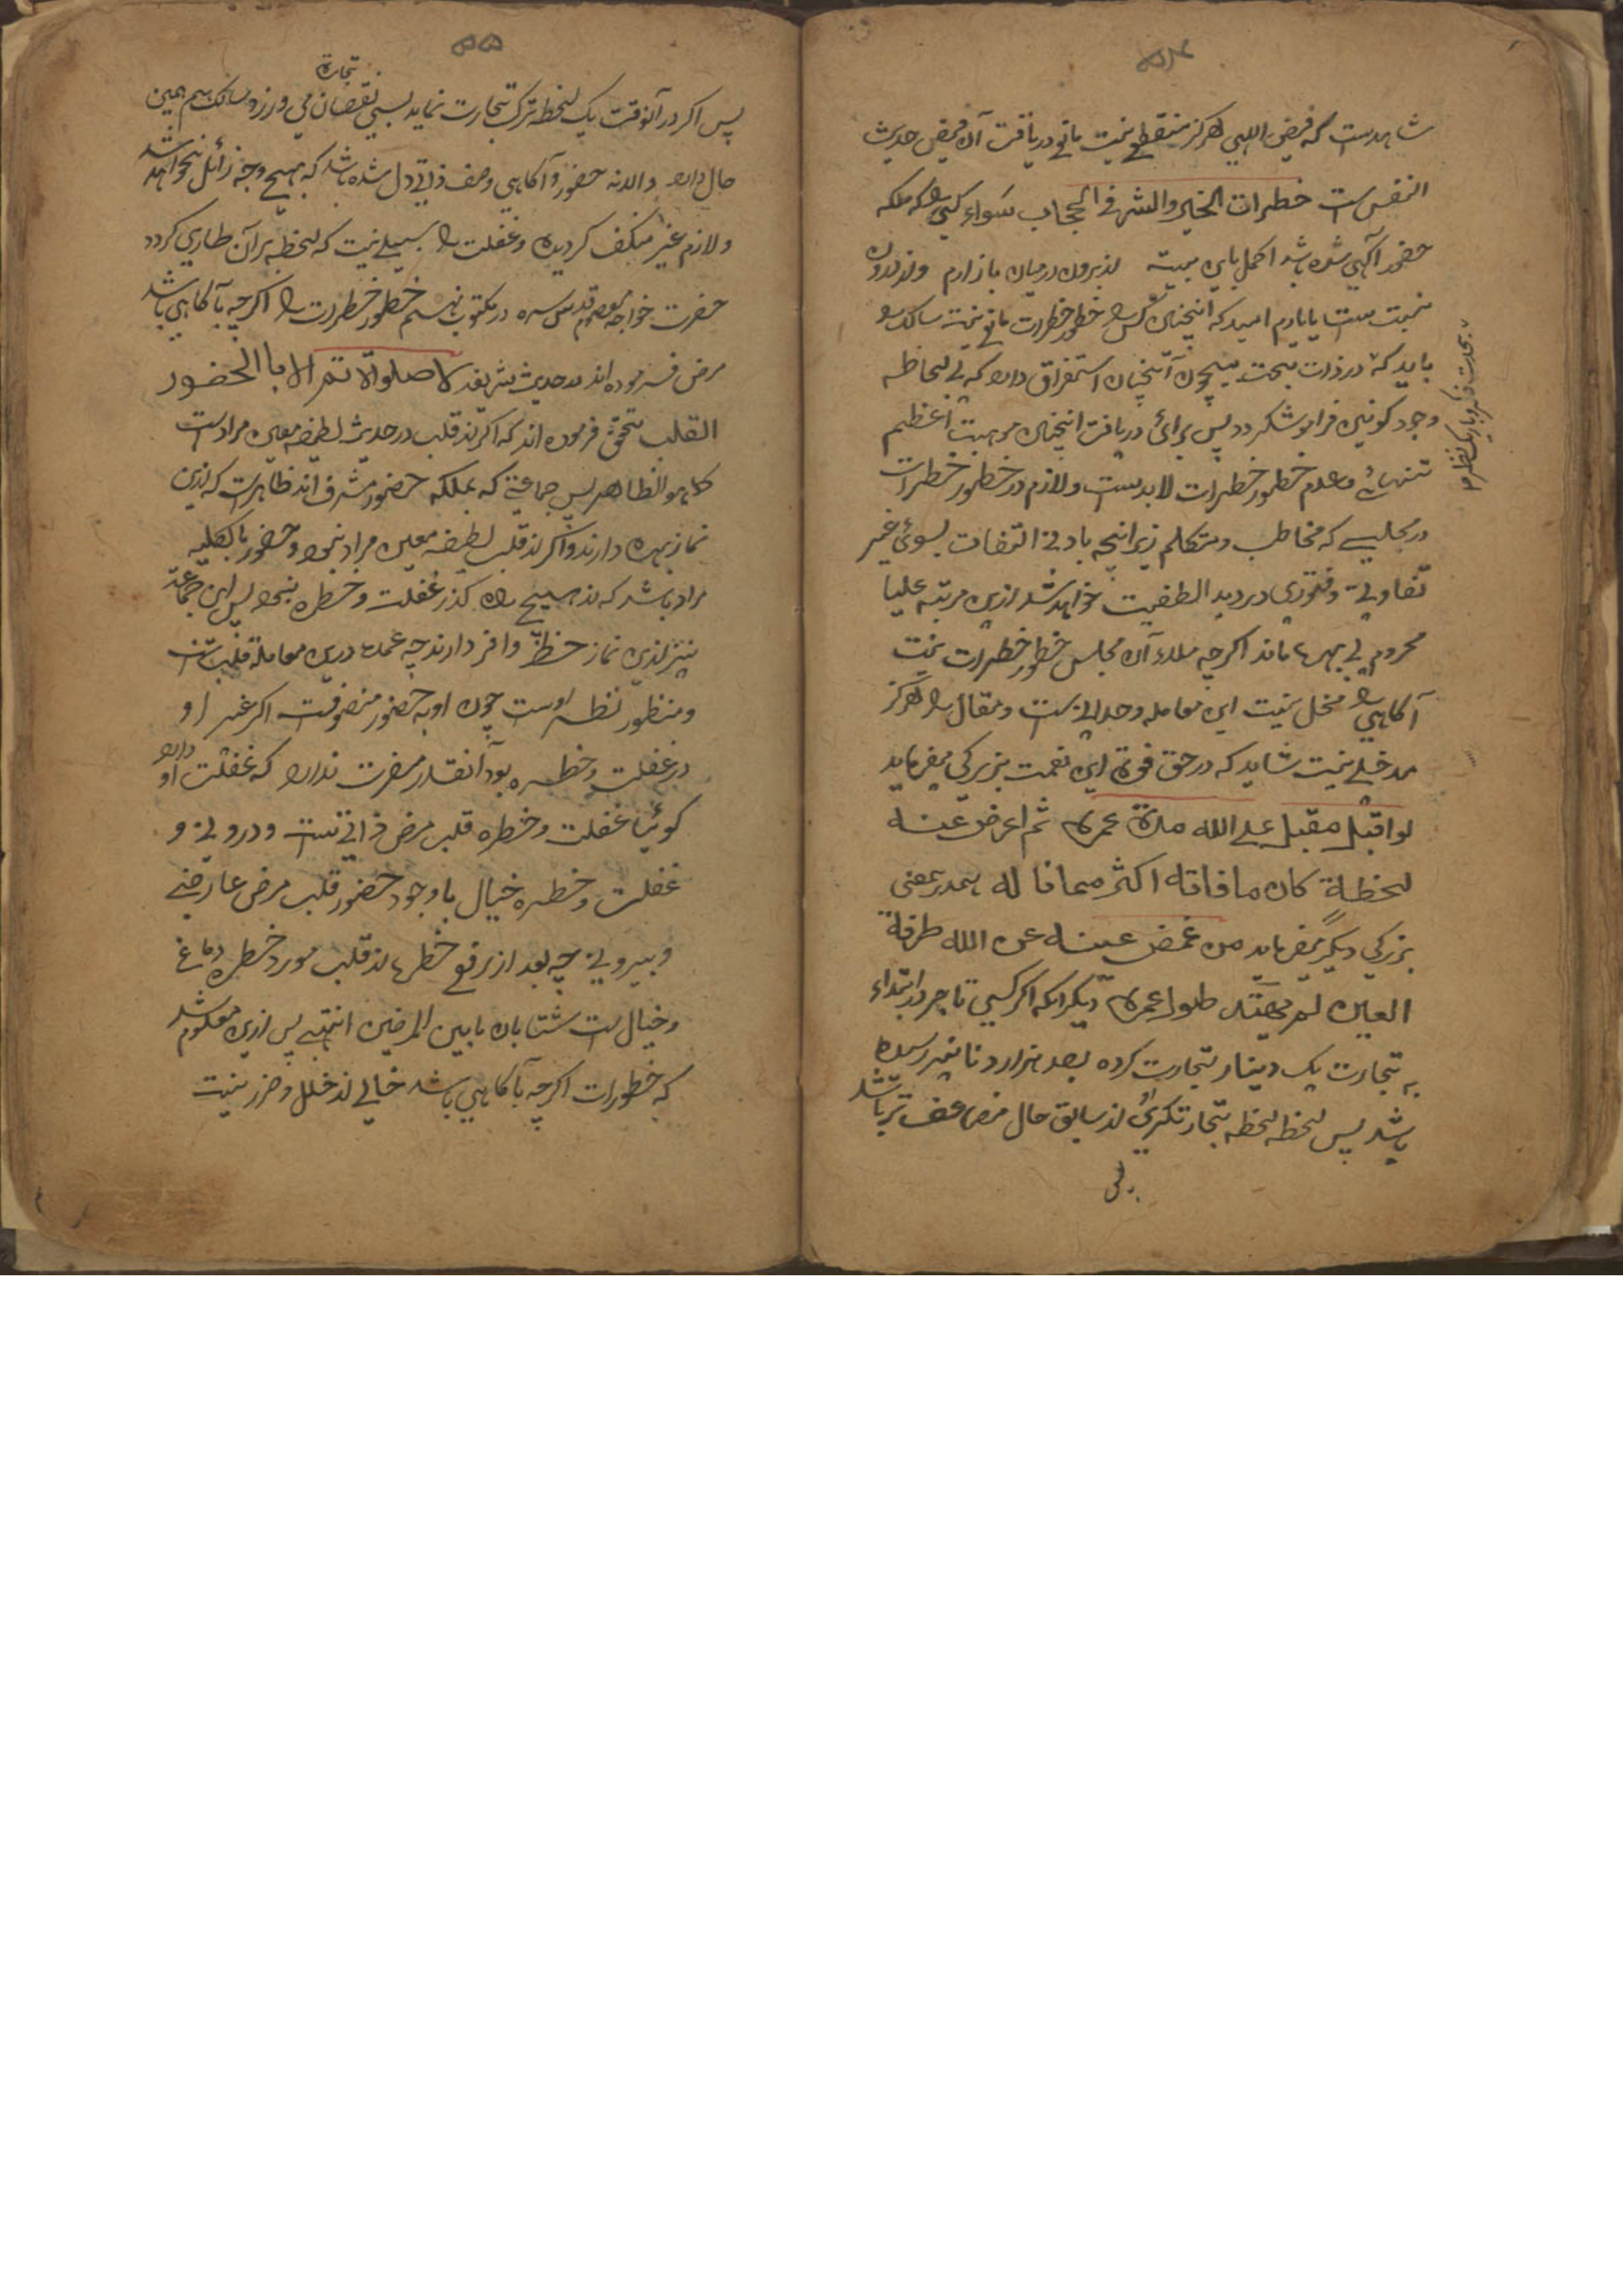 ۵۴
شاهدست که فیض الهی هرکز منقطع نیست مانع دریافت آن فیض حدیث
النفس ست خطرات الخیر والشر فی الحجاب سواء کسی را که ملکه
حضور آکهی شده باشد اکمل باین بیت از برون درمیان بازارم واز درون
باید که در ذات بحت بیچون آنچنان استغراق دارد که بی لحاظه
وجود کونین فراموش کردد پس برای دریافت اینچنین موهبت اعظم
تنهائی وعدم خطور خطرات لابدست ولازم در خطور خطرات
در مجلسی که مخاطب ومتکلم زیرانچه بادنی التفات بسوی غیر
تفاوتی وفتوری در دید الطفیت خواهد شد ازین مرتبه علیا
محروم بی بهره ماند اکرچه آن مجلس خطور خطرات نیست
آکاهی را مخل نیست این معامله وجدانی ست ومقال را هرکز
مدخلی نیست شاید که در حق فوت این نعمت بزرکی میفرماید
لو اقبل مقبل علی الله مدة عمره ثم اعرض عنه
لحظة کان ما فاته اکثر مما نا له همدرین معنی
بزرکی دیکر میفرماید من غمض عینه عن الله طرفة
العین لم یهتد طول عمره دیکر انکه اکر کسی تاجر در ابتداء
به تجارت یک دینار تجارت کرده بعد هزار دنانیر رسیده
باشد پس لحظه لحظه تجارتکری از سابق حال مضاعف تر باشد
۵۵
تجارة
پس اکر در آنوقت یک لحظه ترک تجارت نماید بسی نقصان می ورزد وسالک هم همین
حال دارد والا نه حضور وآکاهی وصف ذاتی دل شده باشد که بهیچ وجه زائل نخواهد شد
ولازم غیر منکف کردیده وغفلت را سبیلی نیست که لحظه بران طاری کردد
حضرت خواجه معصوم قدس سره در مکتوب نهم خطور خطرات را اکرچه با آکاهی باشد
مرض فرموده اند در حدیث شریف لا صلوة الا تتم الا باالحضور
القلب تحقیق فرموده اند که اکر از قلب در حدیث لطیفه معین مراد است
کما هو الظاهر پس جماعتی که بملکه حضور مشرف اند ظاهرست که ازین
نماز بهره دارند واکر از قلب لطیفه معین مراد نبود وحضور بالکلیه
مراد باشد که از هیچ راه کذر غفلت وخطره نبود پس این جماعة
نیز ازین نماز حظ وافر دارند چه عمده درین معامله قلب ست
ومنظور نظر اوست چون او به حضور متصوفست اکر غیر او
در غفلت وخطره بود آنقدر مضرت ندارد که غفلت او دارد
کوئیا غفلت وخطره قلب مرض ذاتی ست ودرونی و
غفلت وخطره خیال باوجود حضور قلب مرض عارضی
وبیرونی چه بعد از رفع خطرها از قلب مورد خطره دماغ
وخیال ست شتان ما بین المرضین انتهی پس ازین معلوم شد
که خطورات اکرچه با آکاهی باشد خالی از خلل وضرر نیست